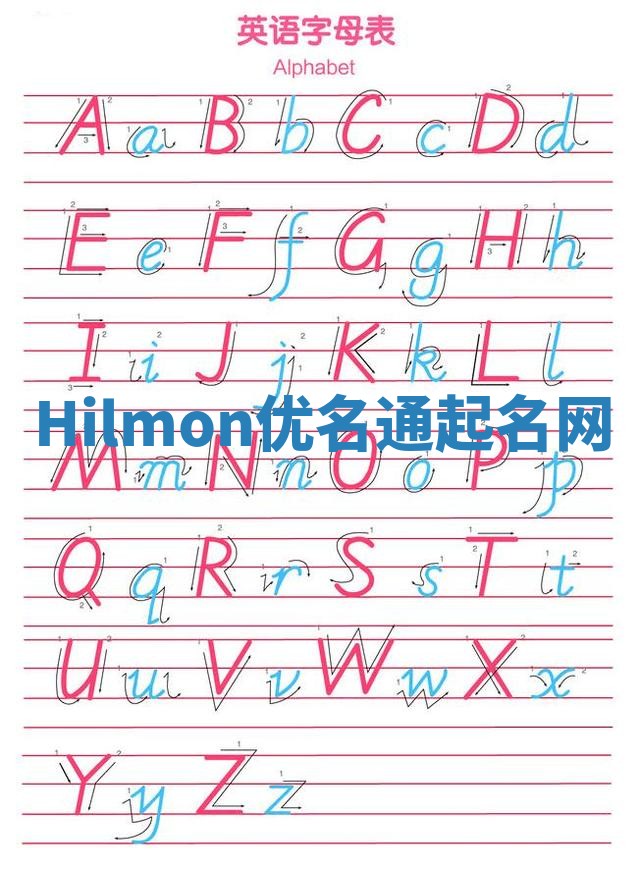 英语字母表
Alphabet
A a B b C c D d
E e F f G g H h
I i J j K k L l
Hilmon优名通起名网
M m N n O o P p
Q q R r S s T t
U u V v W w X x
Y y Z z